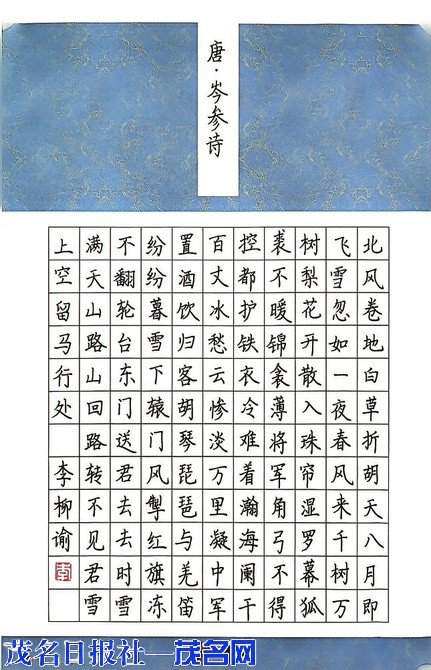 唐·岑参诗
北风卷地白草折胡天八月即
飞雪忽如一夜春风来千树万
树梨花开散入珠帘湿罗幕狐
裘不暖锦衾薄将军角弓不得
控都护铁衣冷难着瀚海阑干
百丈冰愁云惨淡万里凝中军
置酒饮归客胡琴琵琶与羌笛
纷纷暮雪下辕门风掣红旗冻
不翻轮台东门送君去去时雪
满天山路山回路转不见君雪
上空留马行处 李柳谕
茂名日报社—茂名网